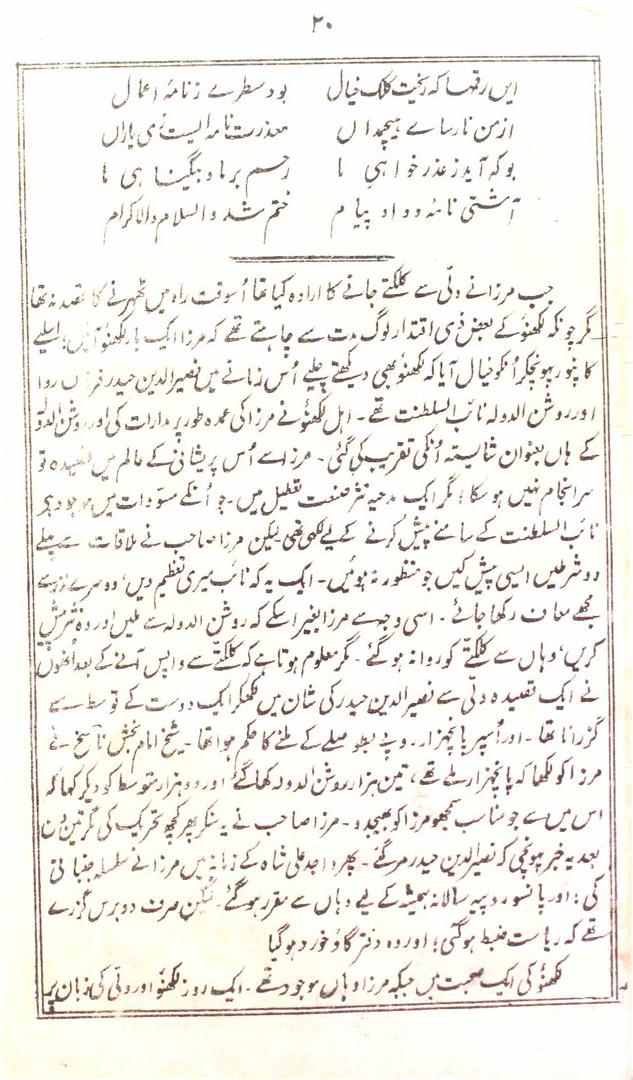 ۲۰
ایں رقمہا کہ ریخت کلک خیال بود سطرے ز نامۂ اعمال
از من نارسائے ہیچمداں معذرت نامہ ایست زی یاراں
بو کہ آید ز عذر خواہیِ ما رحم بر ما و بیگناہی ما
آشتی نامۂ وداد پیام ختم شد والسلام والاکرام
جب مرزا نے دلّی سے کلکتے جانے کا ارادہ کیا تھا اُسوقت راہ میں ٹھہرنے کا قصد نہ تھا
مگر چونکہ لکھنؤ کے بعض ذی اقتدار لوگ مدت سے چاہتے تھے کہ مرزا ایک بار لکھنؤ آئیں، اسلیے
کانپور پہونچکر اُنکو خیال آیا کہ لکھنؤ بھی دیکھتے چلیے اُس زمانے میں نصیرالدین حیدر فرماں روا
اور روشن الدولہ نائب السلطنت تھے۔ اہل لکھنؤ نے مرزا کی عمدہ طور پر مدارات کی اور روشن الدولہ
کے ہاں بعنوان شایستہ اُنکی تقریب کی گئی۔ مرزا سے اُس پریشانی کے عالم میں قصیدہ تو
سرانجام نہیں ہو سکا؛ مگر ایک مدحیہ نثر صنعت تعطیل میں۔ جو اُنکے مسوّدات میں موجود ہے
نائب السلطنت کے سامنے پیش کرنے کے لیے لکھی تھی لیکن مرزا صاحب نے ملاقات سے پہلے
دو شرطیں ایسی پیش کیں جو منظور نہ ہوئیں۔ ایک یہ کہ نائب میری تعظیم دیں، دوسرے نذر سے
مجھے معاف رکھا جائے۔ اسی وجہ سے مرزا بغیر اسکے کہ روشن الدولہ سے ملیں اور وہ نثر پیش
کریں، وہاں سے کلکتے کو روانہ ہو گئے۔ مگر معلوم ہوتا ہے کہ کلکتے سے واپس آنے کے بعد اُنھوں
نے ایک قصیدہ دلّی سے نصیرالدین حیدر کی شان میں لکھکر ایک دوست کے توسط سے
گزرانا تھا۔ اور اُسپر پانچہزار روپے بطور صلے کے ملنے کا حکم ہوا تھا۔ شیخ امام بخش ناسخ نے
مرزا کو لکھا کہ پانچہزار ملے تھے، تین ہزار روشن الدولہ کھا گئے اور دو ہزار متوسط کو دیکر کہا کہ
اس میں سے جو مناسب سمجھو مرزا کو بھیجدو۔ مرزا صاحب نے یہ سنکر پھر کچھ تحریک کی مگر تین دن
بعد یہ خبر پہونچی کہ نصیرالدین حیدر مر گئے۔ پھر واجد علی شاہ کے زمانہ میں مرزا نے سلسلہ جنبانی
کی؛ اور پانسو روپیہ سالانہ ہمیشہ کے لیے وہاں سے مقرر ہو گئے۔ لیکن صرف دو برس گزرے
تھے کہ ریاست ضبط ہو گئی؛ اور وہ دفتر گاؤ خورد ہو گیا
لکھنؤ کی ایک صحبت میں جبکہ مرزا وہاں موجود تھے۔ ایک روز لکھنؤ اور دلّی کی زبان پر